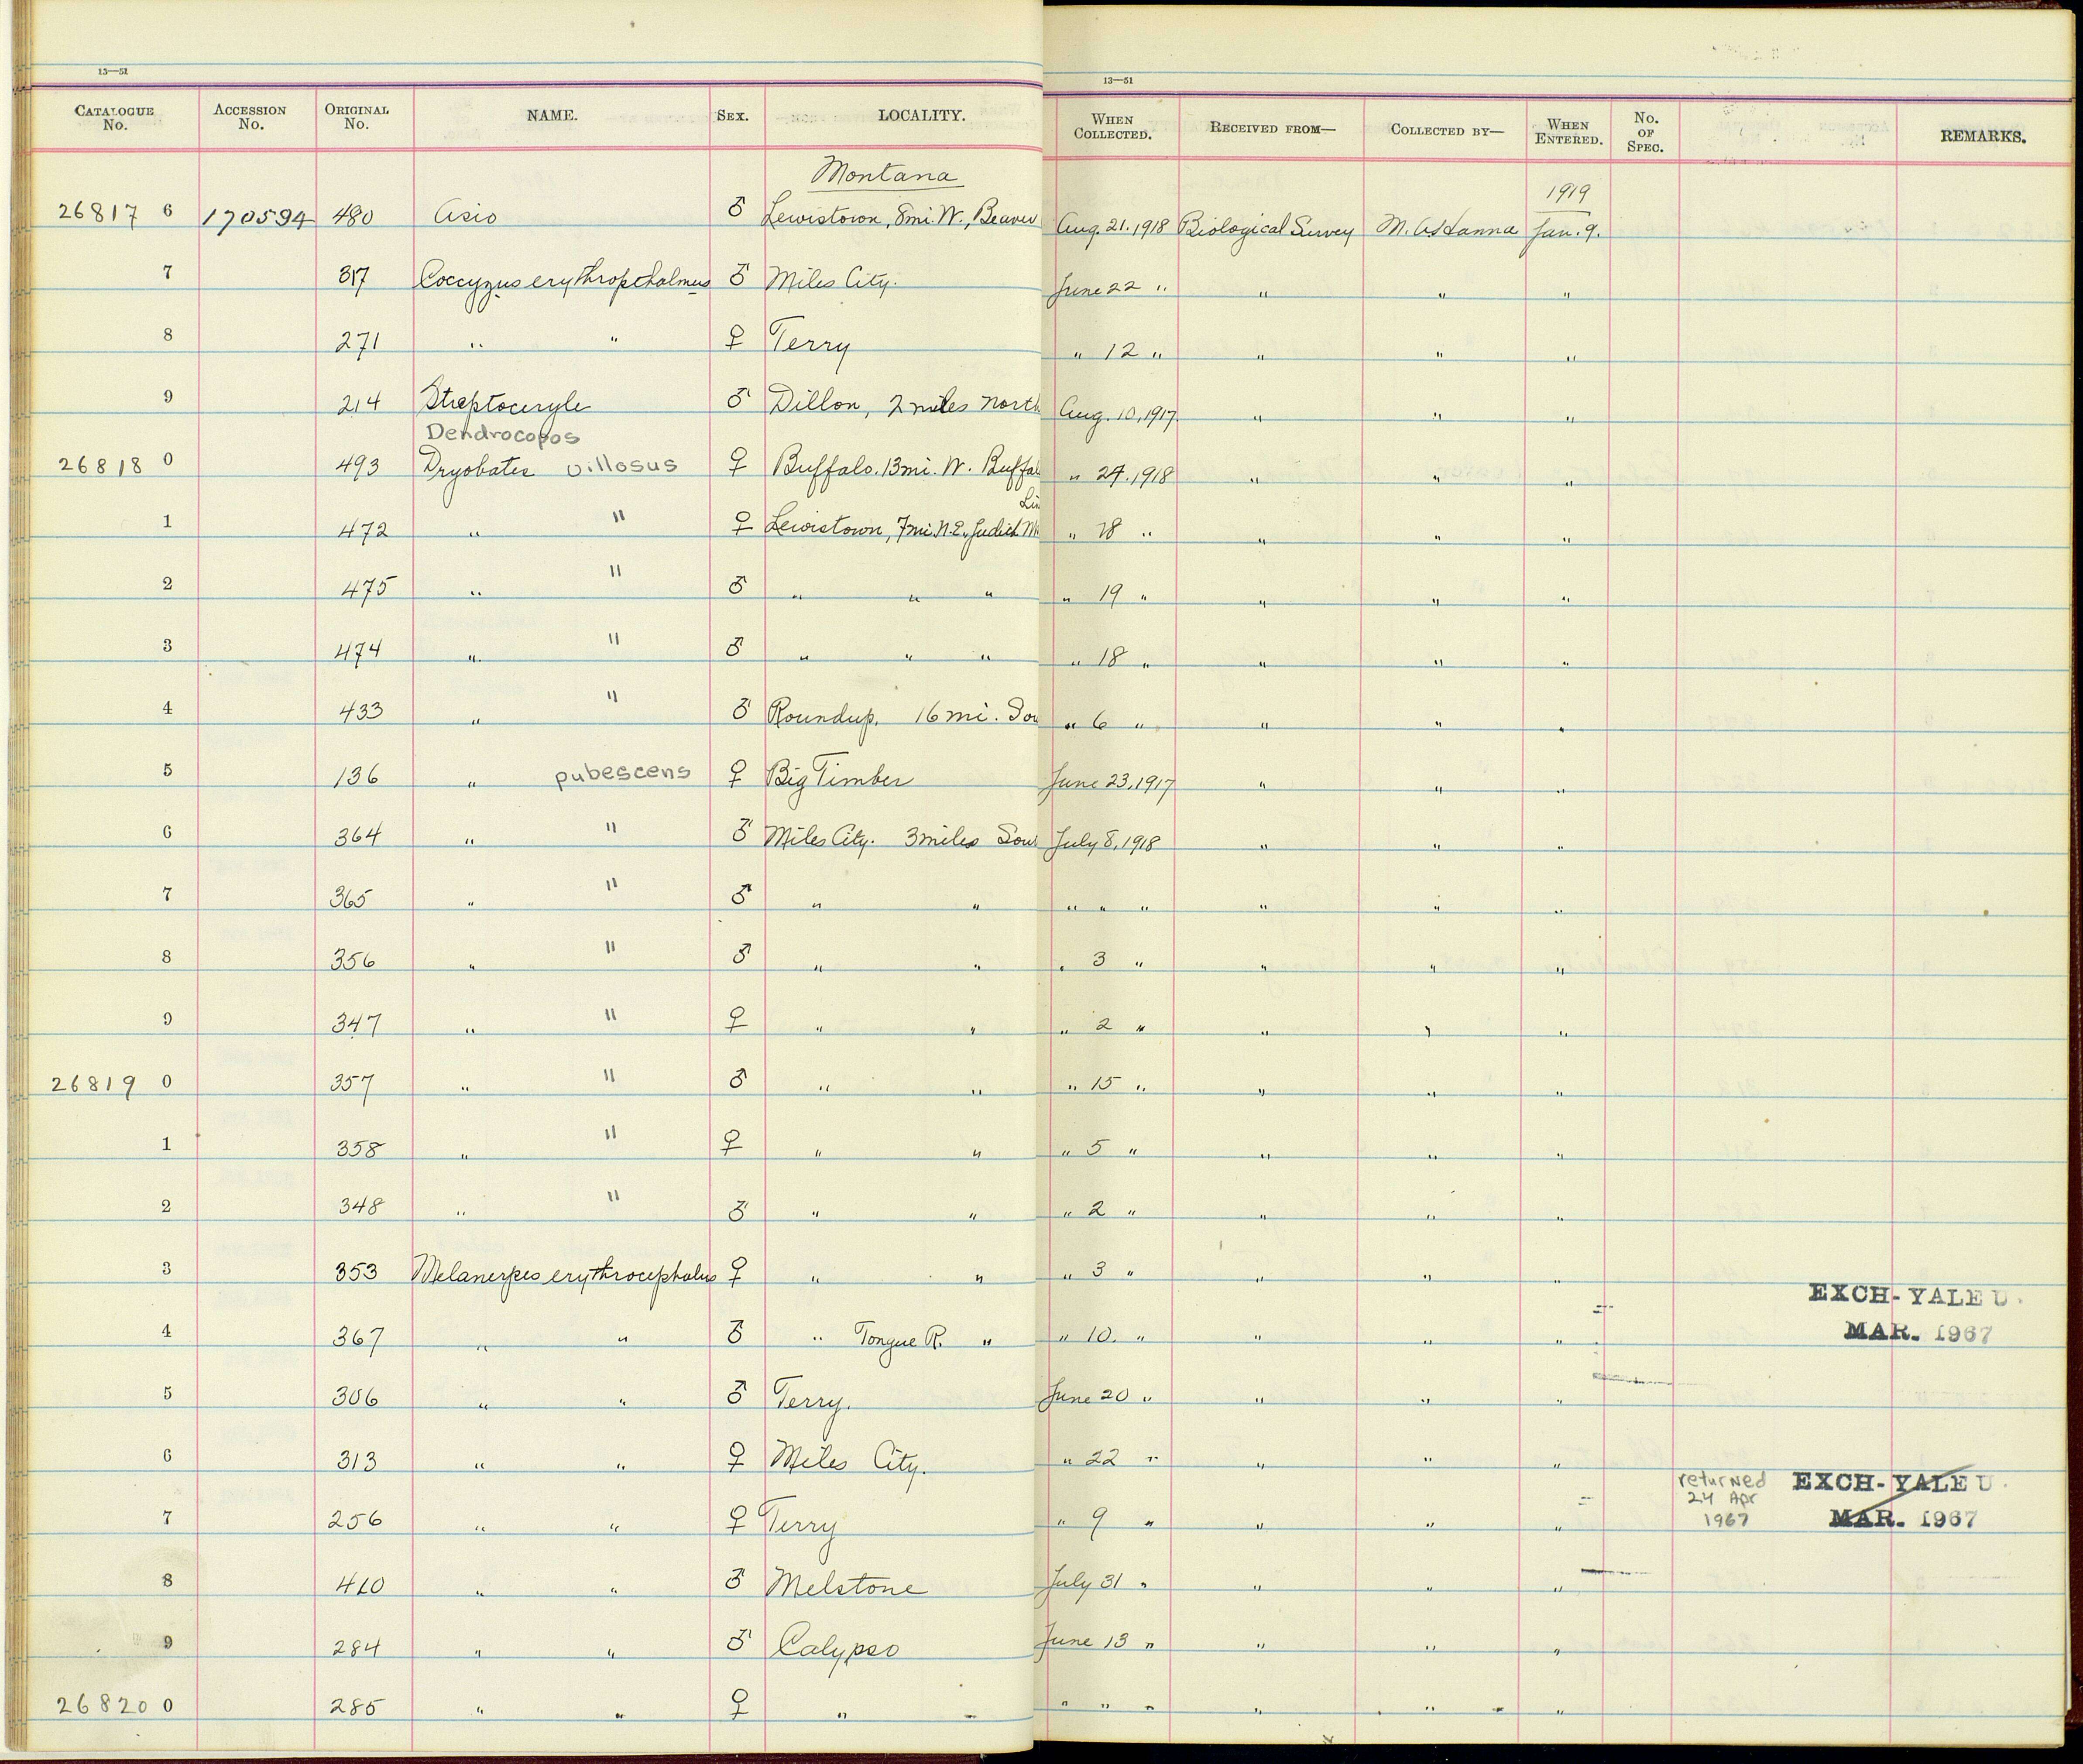 13—51
13—51
CATALOGUE No. ACCESSION No. ORIGINAL No. NAME. SEX. LOCALITY. WHEN COLLECTED. RECEIVED FROM— COLLECTED BY— WHEN ENTERED. No. OF SPEC. REMARKS.
Montana
1919
26817 6 170594 480 Asio ♂ Lewistown, 8mi. W., Beaver Aug. 21. 1918 Biological Survey M. A. Hanna Jan. 9.
7 317 Coccyzus erythropthalmus ♂ Miles City. June 22 " " " "
8 271 " " ♀ Terry " 12 " " " "
9 214 Streptoceryle ♂ Dillon, 2 miles north Aug. 10, 1917. " " "
Dendrocopos
26818 0 493 Dryobates villosus ♀ Buffalo. 13mi. W. Buffal " 27. 1918 " " "
1 472 " " ♀ Lewistown, 7mi. N.E., Judith M " 18 " " " "
2 475 " " ♂ " " " " 19 " " " "
3 474 " " ♂ " " " " 18 " " " "
4 433 " " ♂ Roundup. 16 mi. Sou " 6 " " " "
5 136 " pubescens ♀ Big Timber June 23, 1917 " " "
6 364 " " ♂ Miles City. 3 miles Sou July 8, 1918 " " "
7 365 " " ♂ " " " " " " " "
8 356 " " ♂ " " " 3 " " " "
9 347 " " ♀ " " " 2 " " " "
26819 0 357 " " ♂ " " " 15 " " " "
1 358 " " ♀ " " " 5 " " " "
2 348 " " ♂ " " " 2 " " " "
3 353 Melanerpes erythrocephalus ♀ " " " 3 " " " "
EXCH-YALE U.
4 367 " " ♂ " Tongue R. " " 10. " " " " MAR. 1967
5 306 " " ♂ Terry. June 20 " " " "
6 313 " " ♀ Miles City. " 22 " " " "
returned EXCH-YALE U.
24 Apr
7 256 " " ♀ Terry " 9 " " " " 1967 MAR. 1967
8 410 " " ♂ Melstone July 31 " " " "
9 284 " " ♂ Calypso June 13 " " " "
26820 0 285 " " ♀ " " " " " " " "